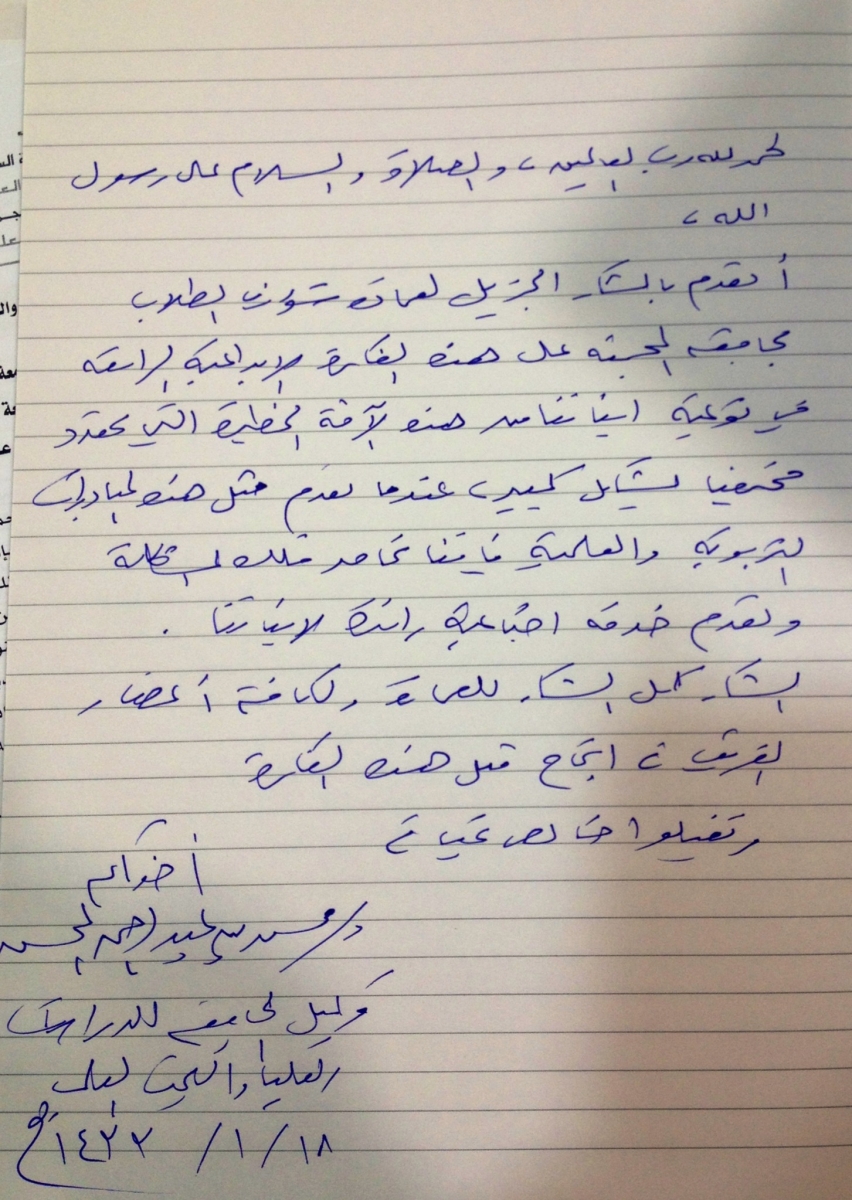 الحمد لله رب العالمين ، والصلاة والسلام على رسول
الله ،
أتقدم بالشكر الجزيل لعمادة شؤون الطلاب
بجامعة على هذه الفكرة الإبداعية الرائعة
في توعية أبنائنا من هذه الآفة الخطيرة التي تهدد
مجتمعنا بشكل كبير، عندما نقدم مثل هذه المبادرات
التربوية والعلمية فإننا نحاصر تلك المشكلة
ونقدم خدمة اجتماعية رائدة لأبنائنا .
الشكر كل الشكر للعمادة ولكافة أعضاء
الفريق في إنجاح مثل هذه الفكرة
وتقبلوا خالص تحياتي
أخوكم
د/ محمد بن عبد الرحمن
وكيل الجامعة للدراسات
العليا والبحث العلمي
١٨ / ١ / ١٤٣٣هـ